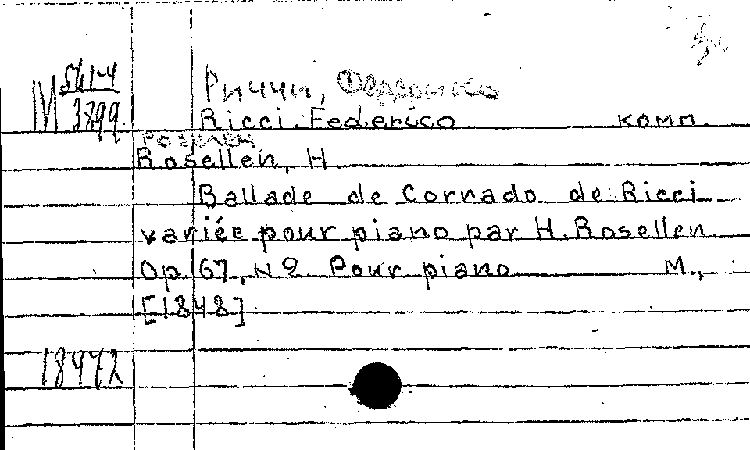 М 561-4
3799
Риччи, Федерико
Ricci, Federico комп.
Розеллен
Rosellen, H.
Ballade de Corrado de Ricci
variée pour piano par H. Rosellen
Op. 67, N 2. Pour piano М.,
[1848]
18972